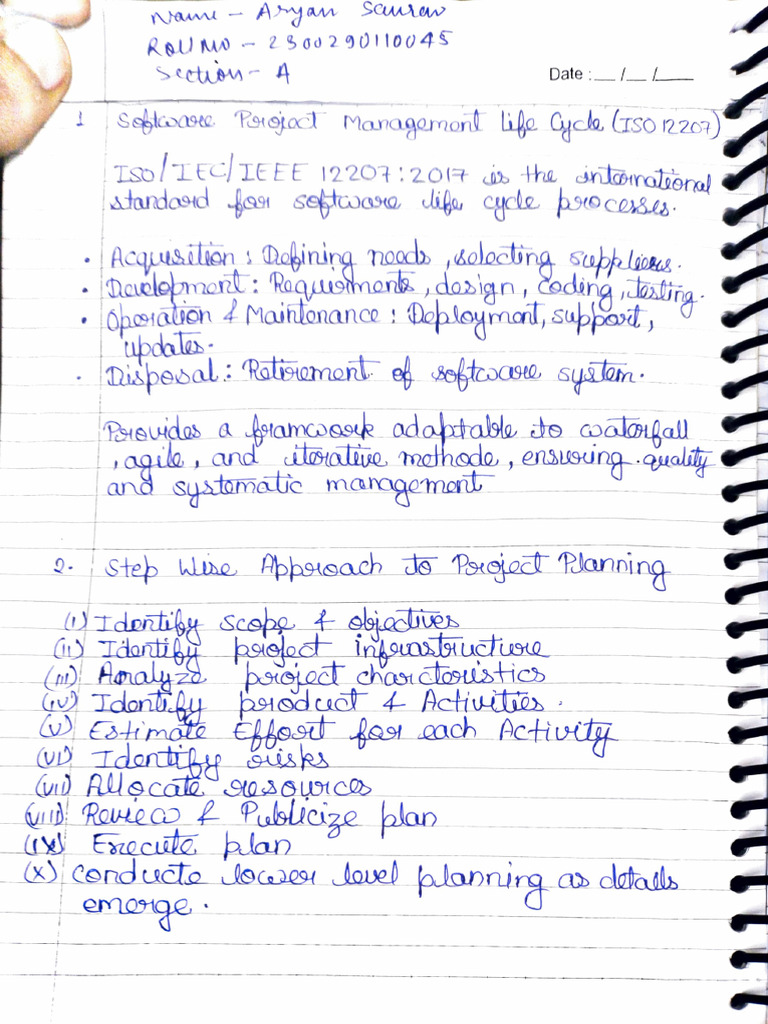 Name - Aryan Saurav
Roll No - 2300290110045
Section - A
Date : __ / __ / ____
1 Software Project Management Life Cycle (ISO 12207)
ISO/IEC/IEEE 12207:2017 is the international
standard for software life cycle processes.
• Acquisition : Defining needs, selecting suppliers.
• Development : Requirments, design, coding, testing.
• Operation & Maintenance : Deployment, support,
updates.
• Disposal : Retirement of software system.
Provides a framwork adaptable to waterfall
, agile, and iterative methode, ensuring quality
and systematic management
2. Step Wise Approach to Project Planning
(i) Identify scope & objectives
(ii) Identify project infrastructure
(iii) Analyze project charcteristics
(iv) Identify product & Activities.
(v) Estimate Effort for each Activity
(vi) Identify risks
(vii) Allocate resources
(viii) Review & Publicize plan
(ix) Execute plan
(x) conducte lower level planning as details
emerge.